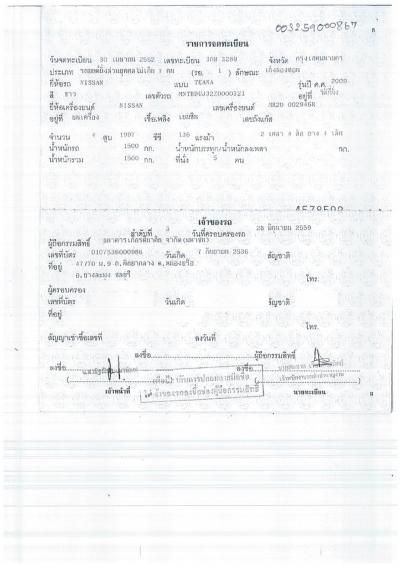 003259000867
8
รายการจดทะเบียน
วันจดทะเบียน 30 เมษายน 2552 เลขทะเบียน 3289 จังหวัด กรุงเทพมหานคร
ประเภท รถยนต์นั่งส่วนบุคคลไม่เกิน 7 คน (รย. 1 ) ลักษณะ เก๋งสองตอน
ยี่ห้อรถ NISSAN แบบ TEANA รุ่นปี ค.ศ. 2009
สี ขาว เลขตัวรถ อยู่ที่
ยี่ห้อเครื่องยนต์ NISSAN เลขเครื่องยนต์ อยู่ที่
เชื้อเพลิง เบนซิน เลขถังแก๊ส
จำนวน สูบ 1997 ซีซี 136 แรงม้า 2 เพลา 4 ล้อ ยาง 4 เส้น
น้ำหนักรถ 1500 กก. น้ำหนักบรรทุก/น้ำหนักลงเพลา กก.
น้ำหนักรวม 1500 กก. ที่นั่ง 5 คน
เจ้าของรถ
ลำดับที่ 3 วันที่ครอบครองรถ 28 มิถุนายน 2559
ผู้ถือกรรมสิทธิ์ ธนาคารเกียรตินาคิน จำกัด(มหาชน)
เลขที่บัตร 0107536000986 วันเกิด 7 กันยายน 2536 สัญชาติ
ที่อยู่ 47/70 ม.9
อ.บางละมุง ชลบุรี โทร.
ผู้ครอบครอง
เลขที่บัตร วันเกิด สัญชาติ
ที่อยู่
โทร.
สัญญาเช่าซื้อเลขที่ ลงวันที่
ลงชื่อ ผู้ถือกรรมสิทธิ์
ลงชื่อ ลงชื่อ
เจ้าหน้าที่ นายทะเบียน